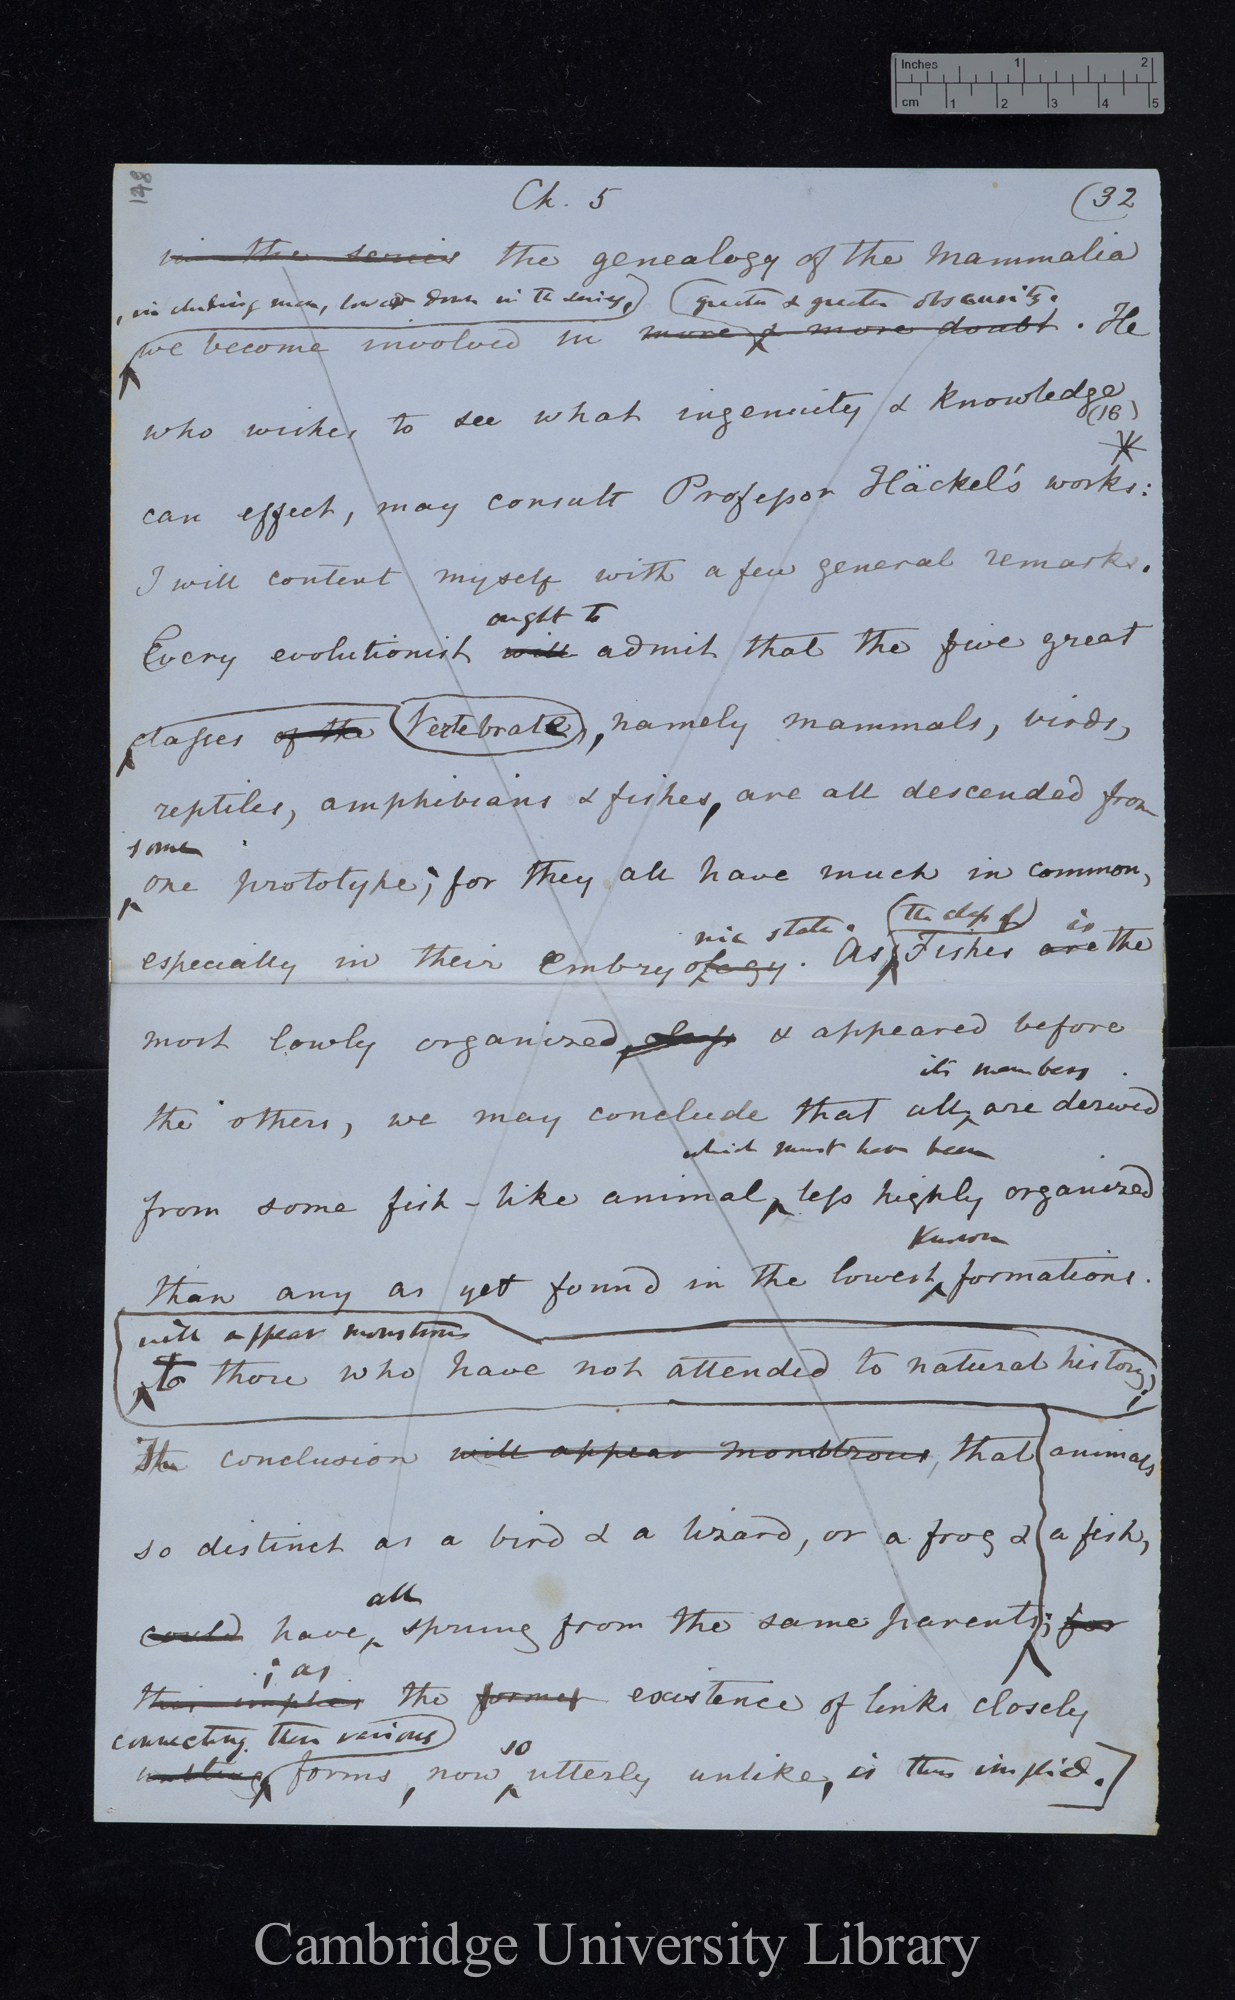 Inches 1 2
cm 1 2 3 4 5
148
Ch. 5 (32
in the series the genealogy of the Mammalia
, including man, lower down in the series, greater & greater obscurity.
we become involved in more & more doubt. He
who wishes to see what ingenuity & knowledge
(16)
can effect, may consult Professor Häckel's works:
I will content myself with a few general remarks.
ought to
Every evolutionist will admit that the five great
classes of the Vertebrate, namely mammals, birds,
reptiles, amphibians & fishes, are all descended from
some
one prototype; for they all have much in common,
nic state. (the class of) is
especially in their embryology. As Fishes are the
most lowly organized, class & appeared before
its members
the others, we may conclude that all are derived
which must have been
from some fish-like animal, less highly organized
known
than any as yet found in the lowest formations.
will appear monstrous
to those who have not attended to natural history;
The conclusion will appear monstrous, that animals
so distinct as a bird & a lizard, or a frog & a fish,
all
could have sprung from the same parents; for
; as
this implies the former existence of links closely
connecting these various so
uniting forms, now utterly unlike, is thus implied.]
Cambridge University Library